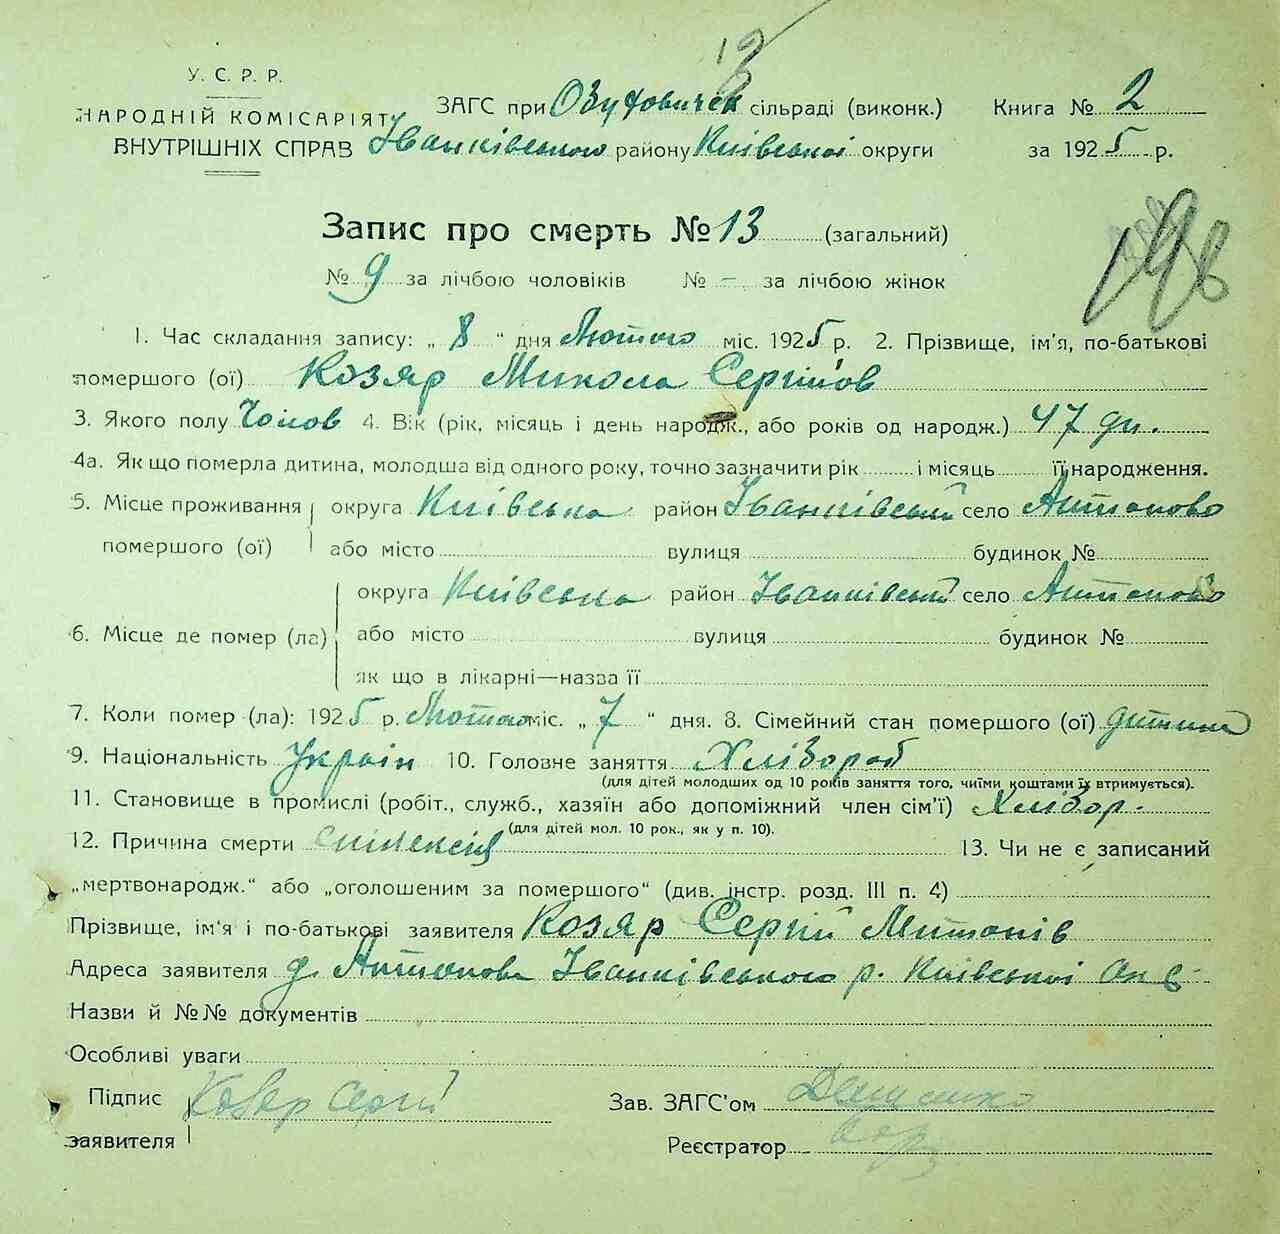 У. С. Р. Р.
НАРОДНІЙ КОМІСАРІЯТ
ВНУТРІШНІХ СПРАВ
ЗАГС при сільраді (виконк.)
Іванківського району Київської округи
Книга № 2
за 1925 р.
Запис про смерть № 13 (загальний)
№ 9 за лічбою чоловіків № – за лічбою жінок
1. Час складання запису: „ 8 “ дня Лютого міс. 1925 р. 2. Прізвище, ім'я, по-батькові
помершого (ої) Козяр Микола Сергійов
3. Якого полу Чолов 4. Вік (рік, місяць і день народж., або років од народж.) 47 дн.
4а. Як що померла дитина, молодша від одного року, точно зазначити рік і місяць її народження.
5. Місце проживання помершого (ої) округа Київська район Іванківський село Антоново
або місто вулиця будинок №
6. Місце де помер (ла) округа Київська район Іванківський село Антоново
або місто вулиця будинок №
як що в лікарні—назва її
7. Коли помер (ла): 1925 р. Лютого міс. „ 7 “ дня. 8. Сімейний стан помершого (ої) дитина
9. Національність Україн 10. Головне заняття Хлібороб
(для дітей молодших од 10 років заняття того, чиїми коштами їх втримується).
11. Становище в промислі (робіт., служб., хазяїн або допоміжний член сім'ї) Хлібор.
(для дітей мол. 10 рок., як у п. 10).
12. Причина смерти 13. Чи не є записаний
„мертвонародж.“ або „оголошеним за помершого“ (див. інстр. розд. III п. 4)
Прізвище, ім'я і по-батькові заявителя Козяр Сергій
Адреса заявителя д. Антонова Іванківського р. Київської
Назви й №№ документів
Особливі уваги
Підпис заявителя Козер Сергій
Зав. ЗАГС'ом
Реєстратор